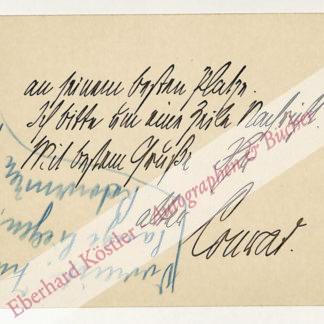 an seinem besten Platze.
Ich bitte um eine Zeile Nachricht.
Mit bestem Gruße Ihr
alter
Conrad.
Eberhard Köstler Autographen & Bücher